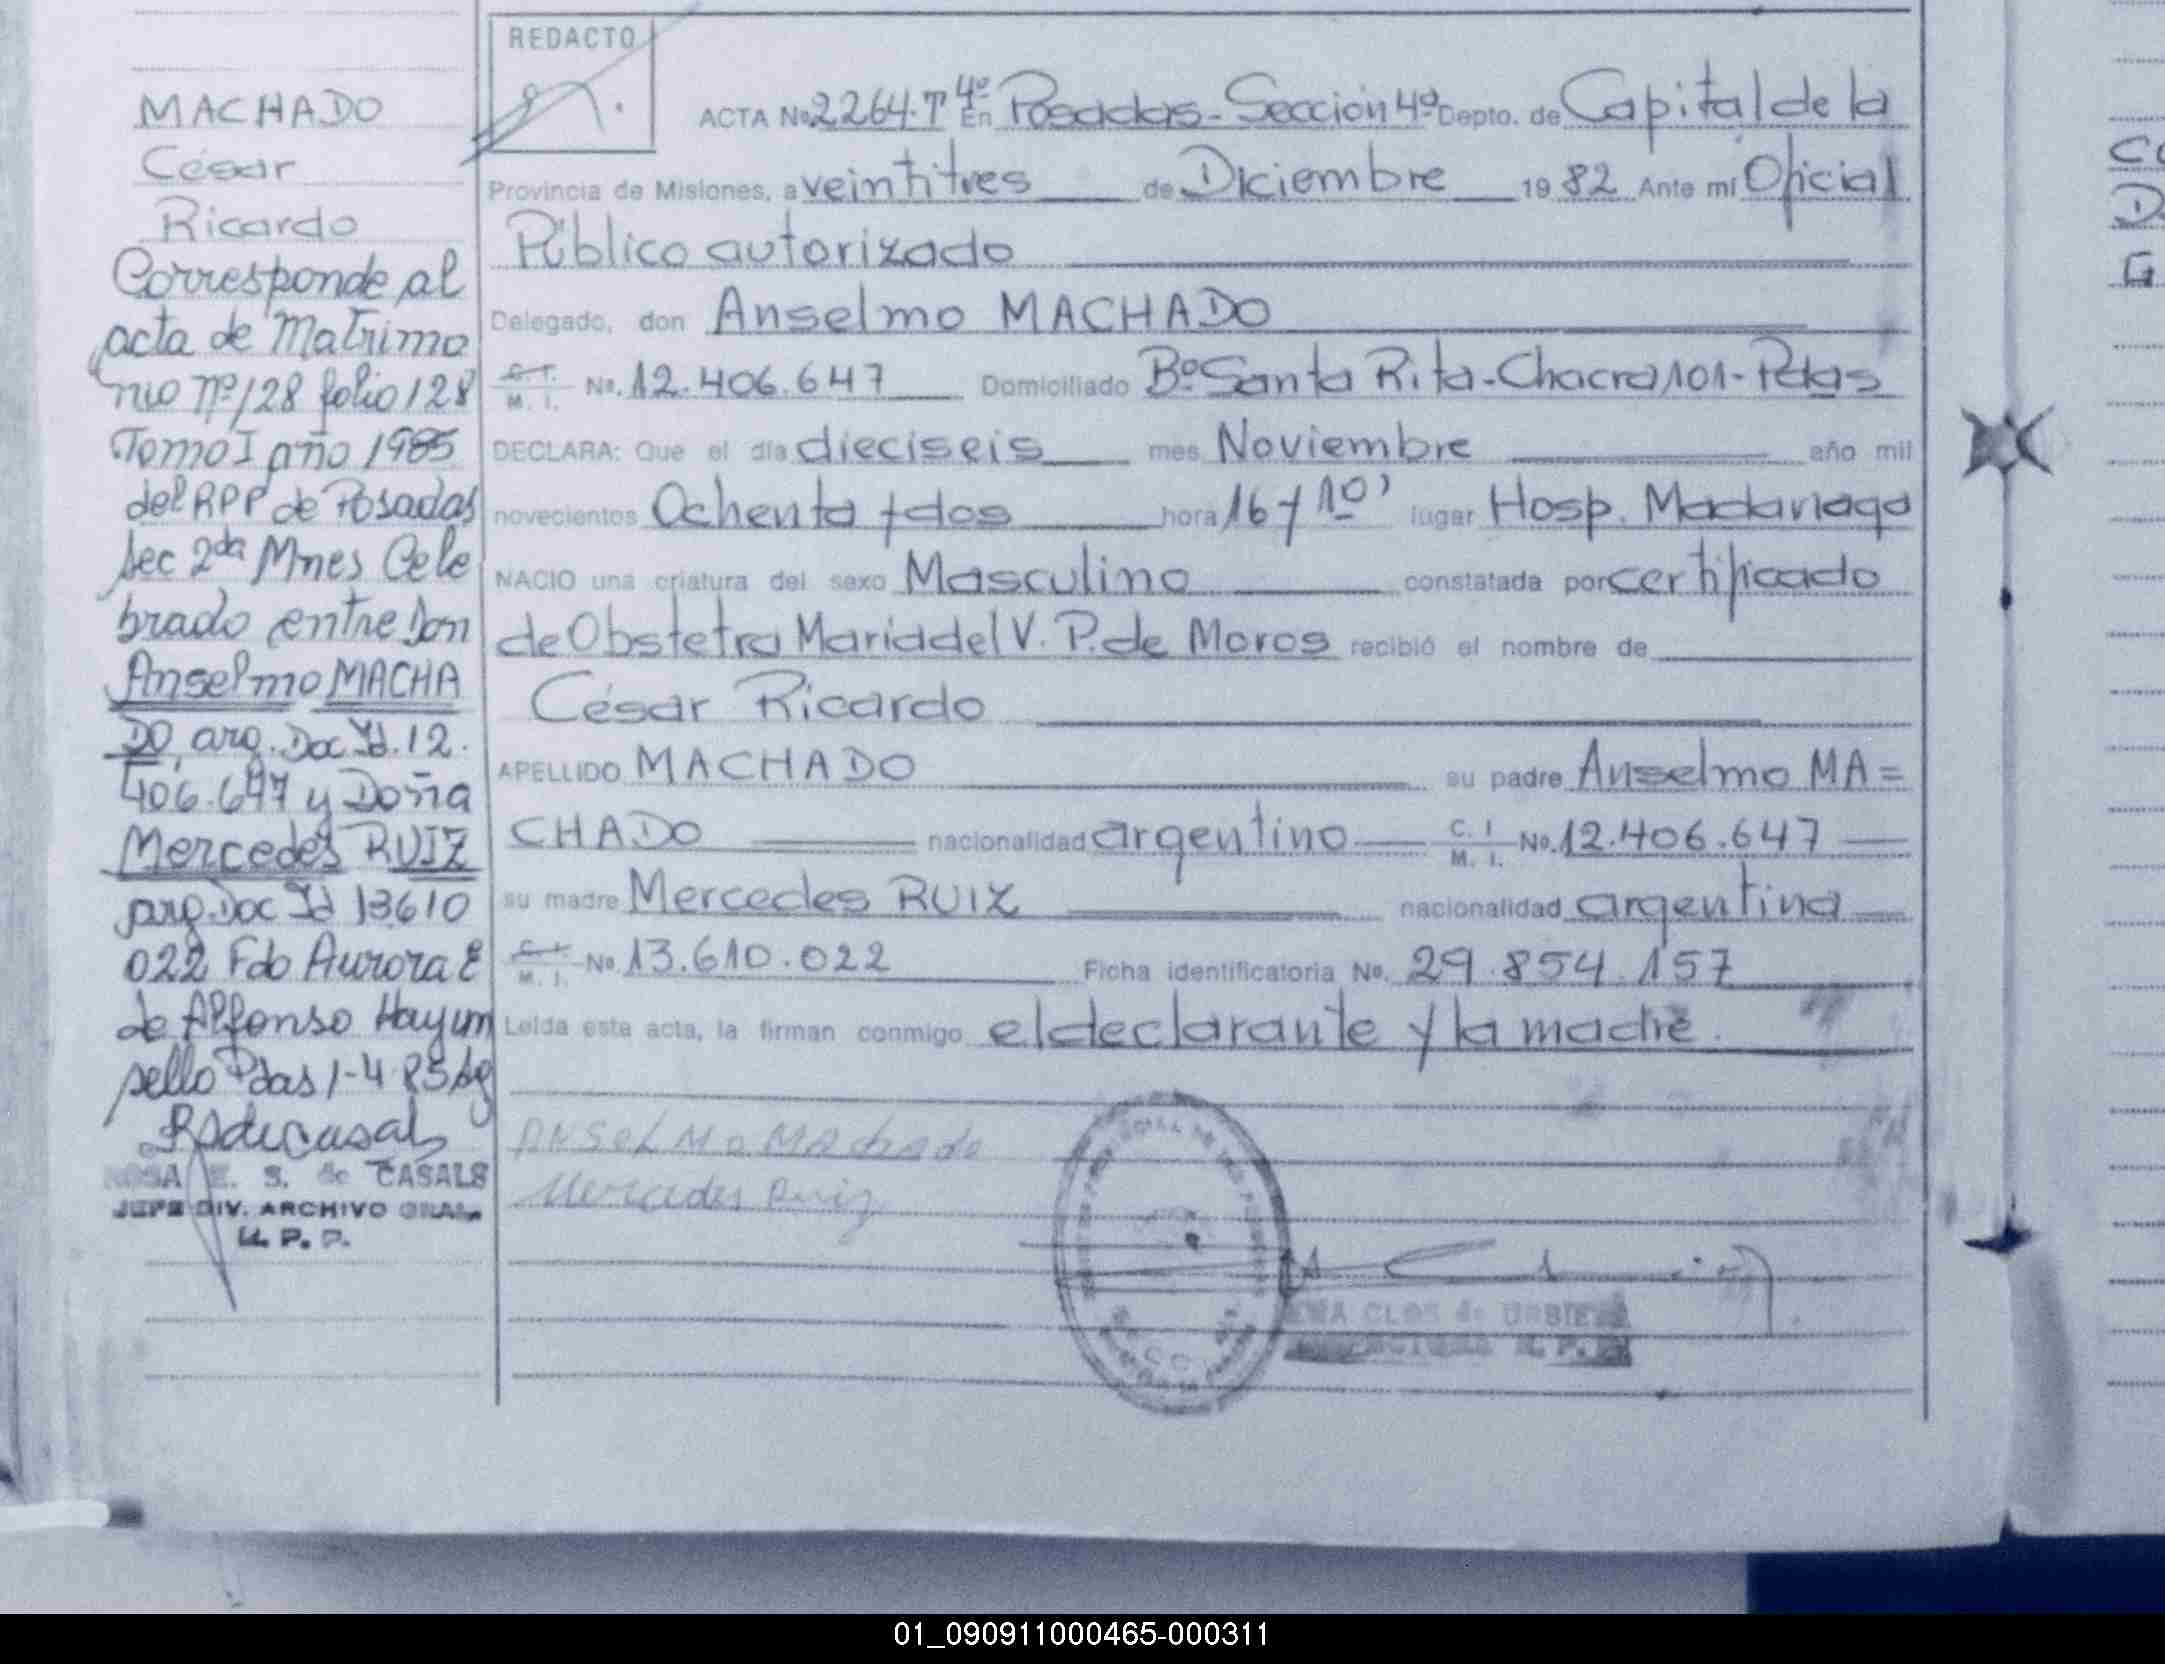 MACHADO
César
Ricardo
Corresponde al
acta de Matrimo
nio nº 128 folio 128
Tomo I año 1985
del RPP de Posadas
sec 2da Mnes Cele
brado entre Don
Anselmo MACHA
DO, arg. Doc Id. 12.
406.647 y Doña
Mercedes RUIZ
arg. Doc Id 13610
022 Fdo Aurora E
de Alfonso Hay un
sello Pdas 1-4-85
E. S. de CASALS
JEFE DIV. ARCHIVO GRAL.
R. P. P.
REDACTO
ACTA No. 2264.Tº4º En Posadas-Sección 4º Depto. de Capital de la
Provincia de Misiones, a veintitres de Diciembre 1982 Ante mí Oficial
Público autorizado
Delegado, don Anselmo MACHADO
C. I. M. I. No. 12.406.647 Domiciliado Bº Santa Rita-Chacra 101-Pdas
DECLARA: Que el día dieciseis mes Noviembre año mil
novecientos Ochenta y dos hora 16 y 10' lugar Hosp. Madariaga
NACIO una criatura del sexo Masculino constatada por certificado
de Obstetra María del V. P. de Moros recibió el nombre de
César Ricardo
APELLIDO MACHADO su padre Anselmo MA=
CHADO nacionalidad argentino C. I M. I. No. 12.406.647
su madre Mercedes RUIZ nacionalidad argentina
C. I. M. I. No. 13.610.022 Ficha identificatoria No. 29.854.157
Leída esta acta, la firman conmigo el declarante y la madre.
ANSELMO MAchado
Mercedes Ruiz
CLOS de URBIETA
01_090911000465-000311